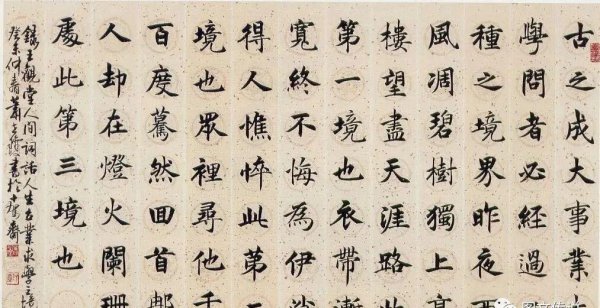 古之成大事業
學問者必經過
種之境界昨夜西
風凋碧樹獨上高
樓望盡天涯路此
第一境也衣帶漸
寬終不悔為伊消
得人憔悴此第二
境也眾裡尋他千
百度驀然回首那
人却在燈火闌珊
處此第三境也
錄王觀堂人間詞話人生
癸未 春蕭 書於 齋